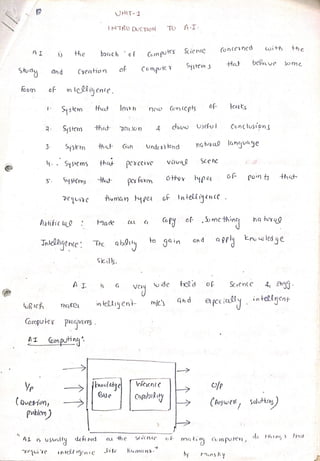 UNIT-1
INTRODUCTION TO A-I.
AI is the branch of Computer Science Concerned with the
Study and Creation of Computer Systems that behave some
form of intelligence.
1. System that learn new Concepts of tasks
2. System that reason & draw useful Conclusions
3. System that Can understand natural language
4. Systems that perceive visual Scene
5. Systems that perform other types of points that
require human types of Intelligence.
Artificial : Made as a Copy of Something natural
Intelligence: The ability to gain and apply knowledge
Skills.
A I is a very wide field of Science & engg.
which makes intelligent m/c's and especially intelligent
Computer programs.
AI Computing:
I/P
(Question, problem)
knowledge Base
Inference Capability
O/P
(Answers, Solutions)
"AI is usually defined as the science of making Computers, do things that
require intelligence like humans."
by Minsky